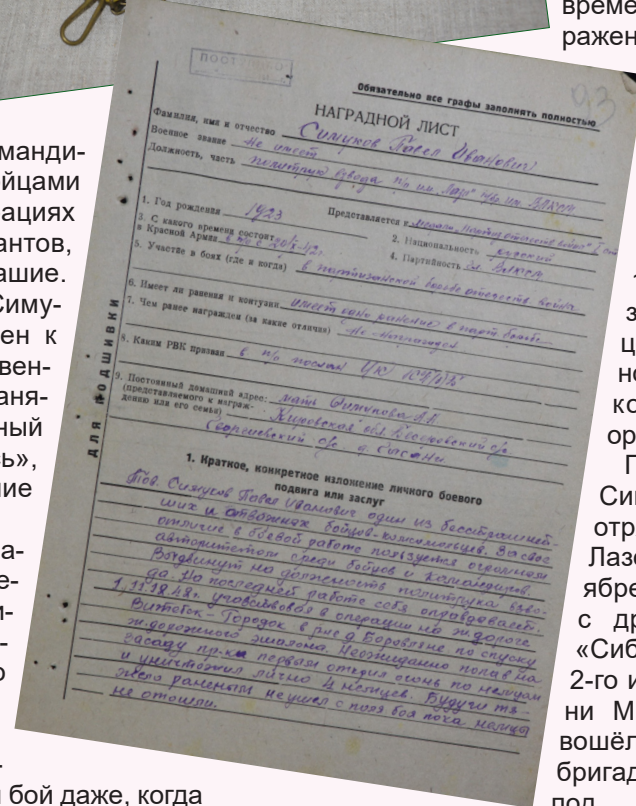 време
ражен
манди-
йцами
ациях
антов,
ашие.
Симу-
ен к
вен-
аня-
ный
сь»,
ние
а-
е-
и-
-
о
бой даже, когда
93
Обязательно все графы заполнять полностью
НАГРАДНОЙ ЛИСТ
Фамилия, имя и отчество Симуков Павел Иванович
Военное звание Не имеет
Должность, часть политрук взвода п/о им. Лазо п/бр. им. ВЛКСМ
Представляется к медали
1. Год рождения 1923 2. Национальность русский
3. С какого времени состоит в Красной Армии 4. Партийность чл. ВЛКСМ
5. Участие в боях (где и когда) в партизанской борьбе отечеств. война
6. Имеет ли ранения и контузии имеет одно ранение в парт. борьбе
7. Чем ранее награжден (за какие отличия) Не награждался
8. Каким РВК призван в п/о послан ЦК
9. Постоянный домашний адрес: мать Симукова
(представляемого к награж-
дению или его семьи) Кировская обл.
д.
ДЛЯ ПОДШИВКИ
1. Краткое, конкретное изложение личного боевого
подвига или заслуг
Тов. Симуков Павел Иванович один из бесстрашней-
ших и отважных бойцов-комсомольцев. За свое
отличие в боевой работе пользуется огромным
авторитетом среди бойцов и командиров.
Выдвинут на должность политрука взво-
да. На последней работе себя оправдывает.
участвовал в операции на ж. дороге
Витебск - Городок в р-не д. Боровляне по спуску
ж. дорожного эшалона. Неожиданно попав на
засаду пр-ка первым открыл огонь по немцам
и уничтожил лично 4 немцев. Будучи тя-
жело раненым не ушел с поля боя пока немцы
не отошли.
з
ц
но
ко
ор
П
Сим
отр
Лазо
ябре
с др
«Сиб
2-го и
ни М
вошёл
бригад
под